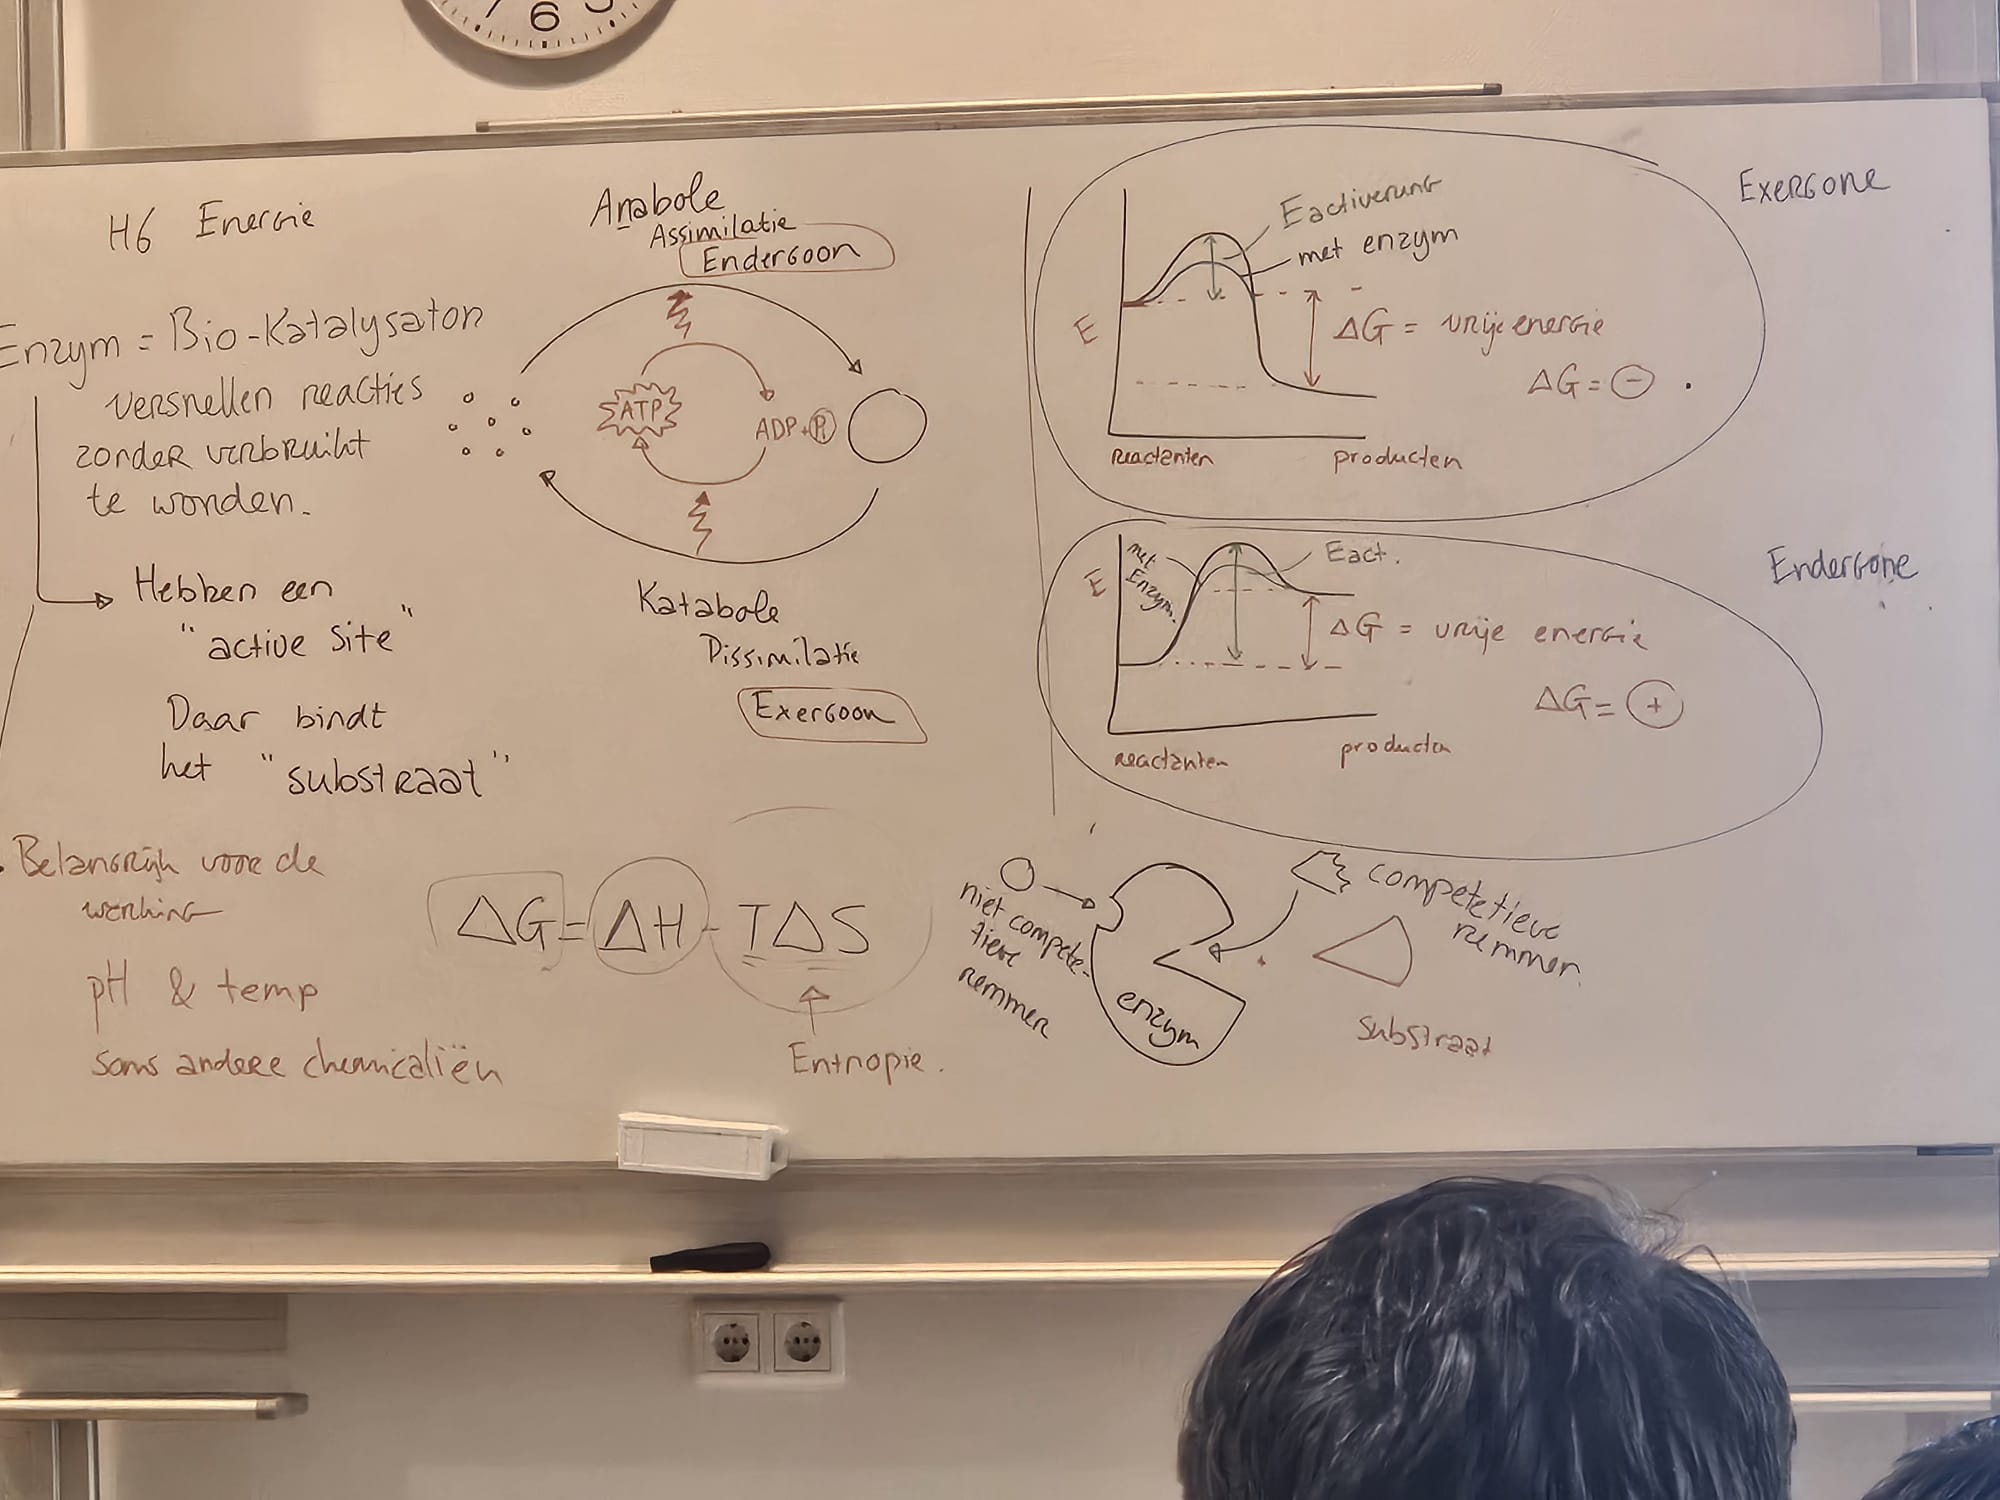 6
H6 Energie
Enzym = Bio-Katalysator
versnellen reacties
zonder verbruikt
te worden.
Hebben een
"active site"
Daar bindt
het "substraat"
Belangrijk voor de
werking
pH & temp
soms andere chemicaliën
Anabole
Assimilatie
Endergoon
ATP
ADP + Pi
Katabole
Dissimilatie
Exergoon
ΔG = ΔH - TΔS
Entropie.
Exergone
Eactiverung
met enzym
E
ΔG = vrije energie
ΔG = -
reactanten
producten
Endergone
met
Enzym.
Eact.
E
ΔG = vrije energie
ΔG = +
reactanten
producten
niet compete-
tieve
remmer
enzym
competetieve
remmer.
substraat